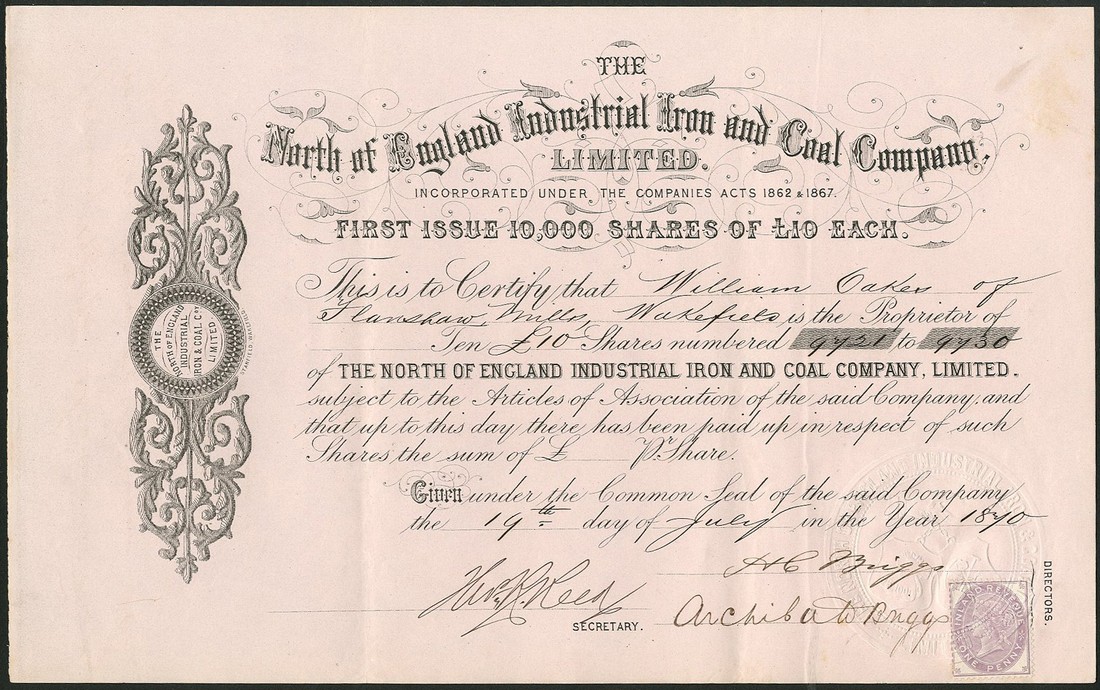 THE
North of England Industrial Iron and Coal Company,
LIMITED.
INCORPORATED UNDER THE COMPANIES ACTS 1862 & 1867.
FIRST ISSUE 10,000 SHARES OF £10 EACH.
This is to Certify that William Oakes of
Flanshaw Mills, Wakefield is the Proprietor of
Ten £10 Shares numbered 9721 to 9730
of THE NORTH OF ENGLAND INDUSTRIAL IRON AND COAL COMPANY, LIMITED.
subject to the Articles of Association of the said Company, and
that up to this day there has been paid up in respect of such
Shares the sum of £ Pr. Share.
Given under the Common Seal of the said Company
the 19th day of July in the Year 1870
H C Briggs
Reed
SECRETARY.
Archibald Briggs
DIRECTORS.
THE
NORTH OF ENGLAND
INDUSTRIAL
IRON & COAL Co.
LIMITED
INLAND REVENUE
ONE PENNY